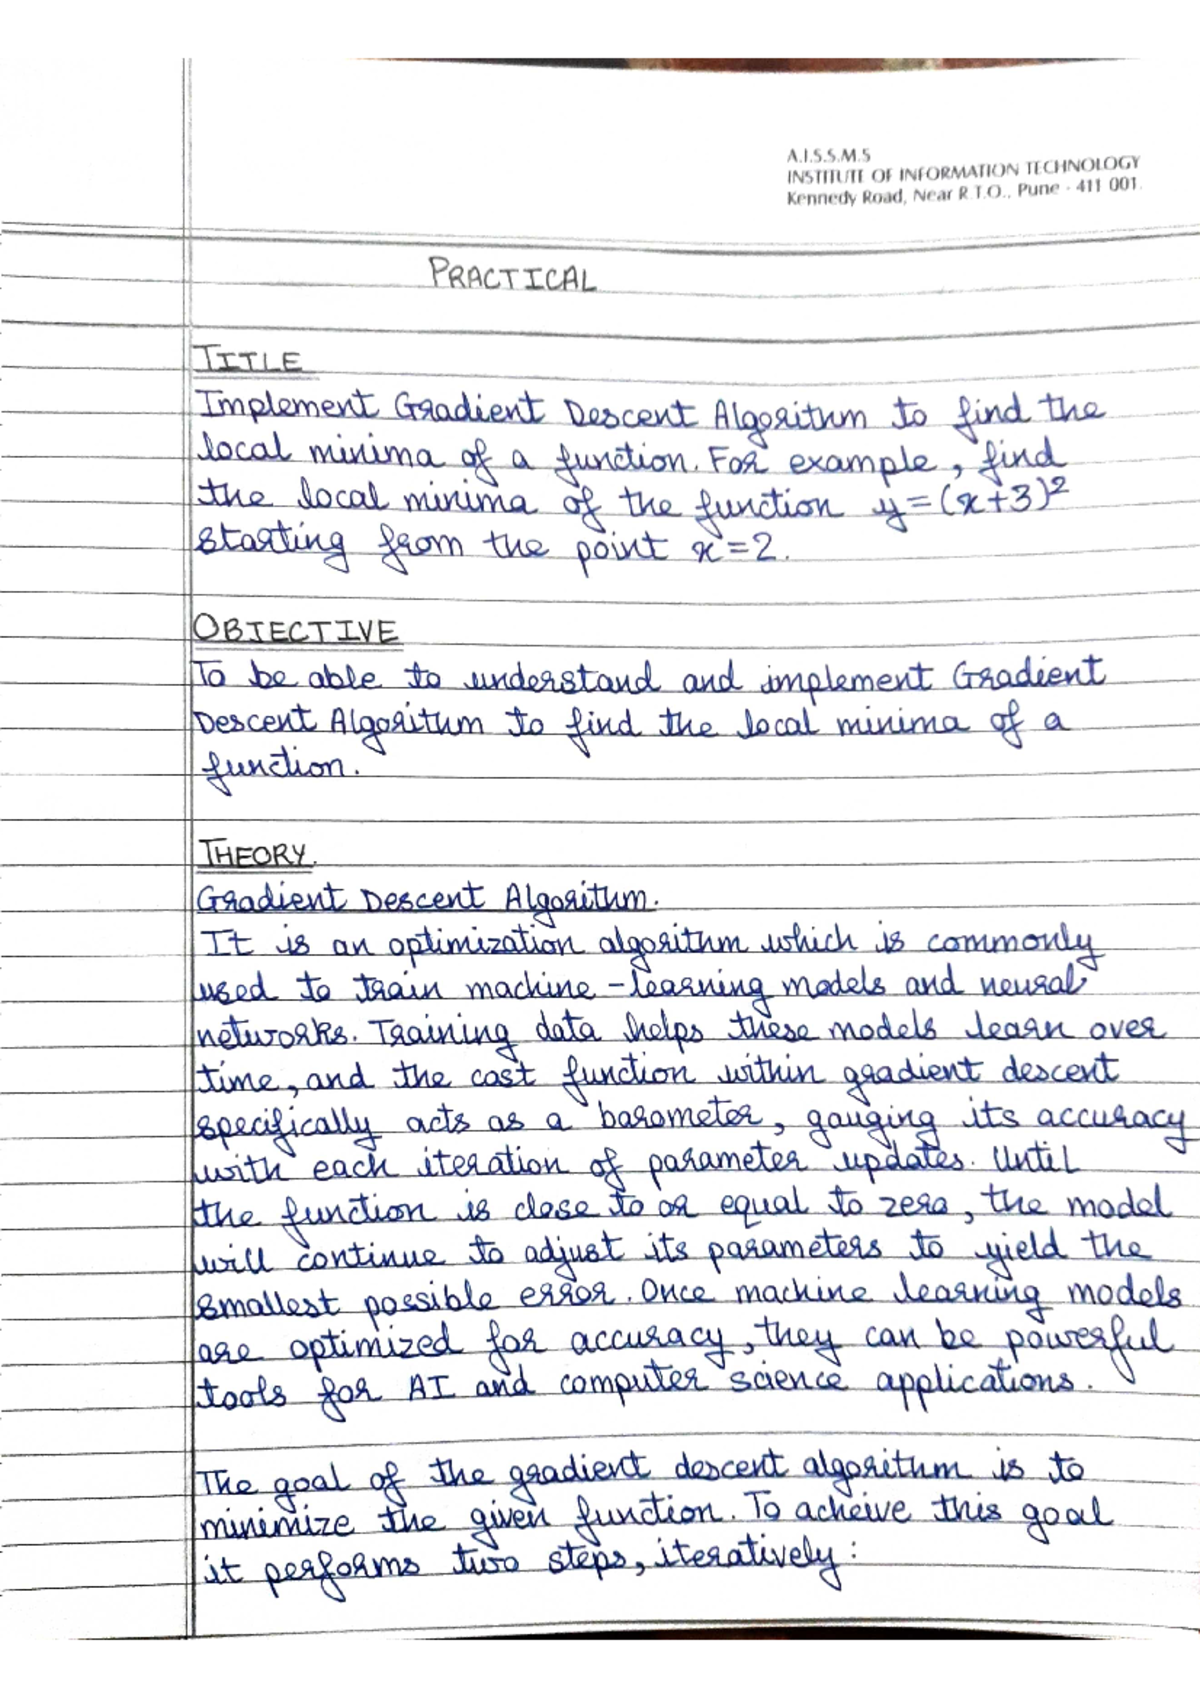 A.I.S.S.M.S
INSTITUTE OF INFORMATION TECHNOLOGY
Kennedy Road, Near R.T.O., Pune - 411 001.
PRACTICAL
TITLE
Implement Gradient Descent Algorithm to find the
local minima of a function. For example, find
the local minima of the function y=(x+3)²
starting from the point x=2.
OBJECTIVE
To be able to understand and implement Gradient
Descent Algorithm to find the local minima of a
function.
THEORY.
Gradient Descent Algorithm.
It is an optimization algorithm which is commonly
used to train machine-learning models and neural
networks. Training data helps these models learn over
time, and the cost function within gradient descent
specifically acts as a barometer, gauging its accuracy
with each iteration of parameter updates. Until
the function is close to or equal to zero, the model
will continue to adjust its parameters to yield the
smallest possible error. Once machine learning models
are optimized for accuracy, they can be powerful
tools for AI and computer science applications.
The goal of the gradient descent algorithm is to
minimize the given function. To acheive this goal
it performs two steps, iteratively: